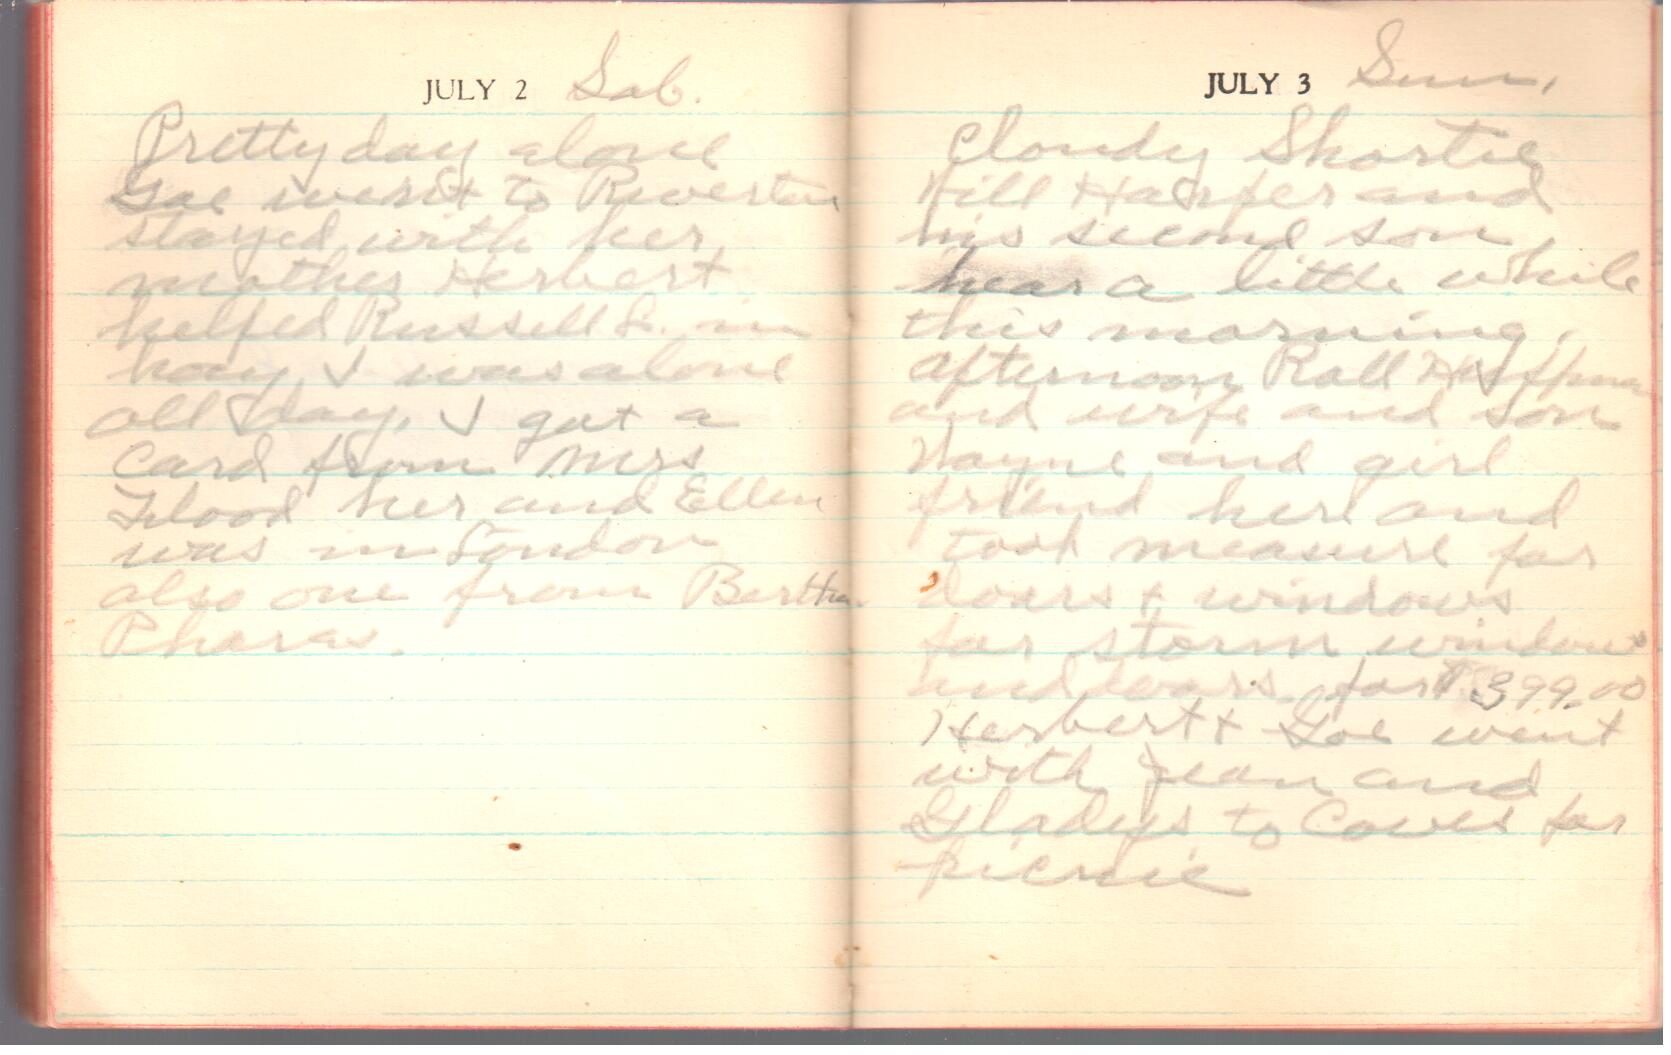 JULY 2 Sab.
Pretty day alone
Goe went to Riverton
stayed with her
mother Herbert
helped Russell S. in
hay I was alone
all day, I got a
Card from Mrs
Flood her and Ellen
was in London
also one from Bertha
Phares.
JULY 3 Sun,
Cloudy Shortie
Hill Harper and
his second son
hear a little while
this morning,
afternoon Rall Huffman
and wife and son
Wayne and girl
friend her and
took measure for
doars + windows
for storm windows
and doars for 399.00
Herbert + Goe went
with Jean and
Gladys to Coves for
picnic